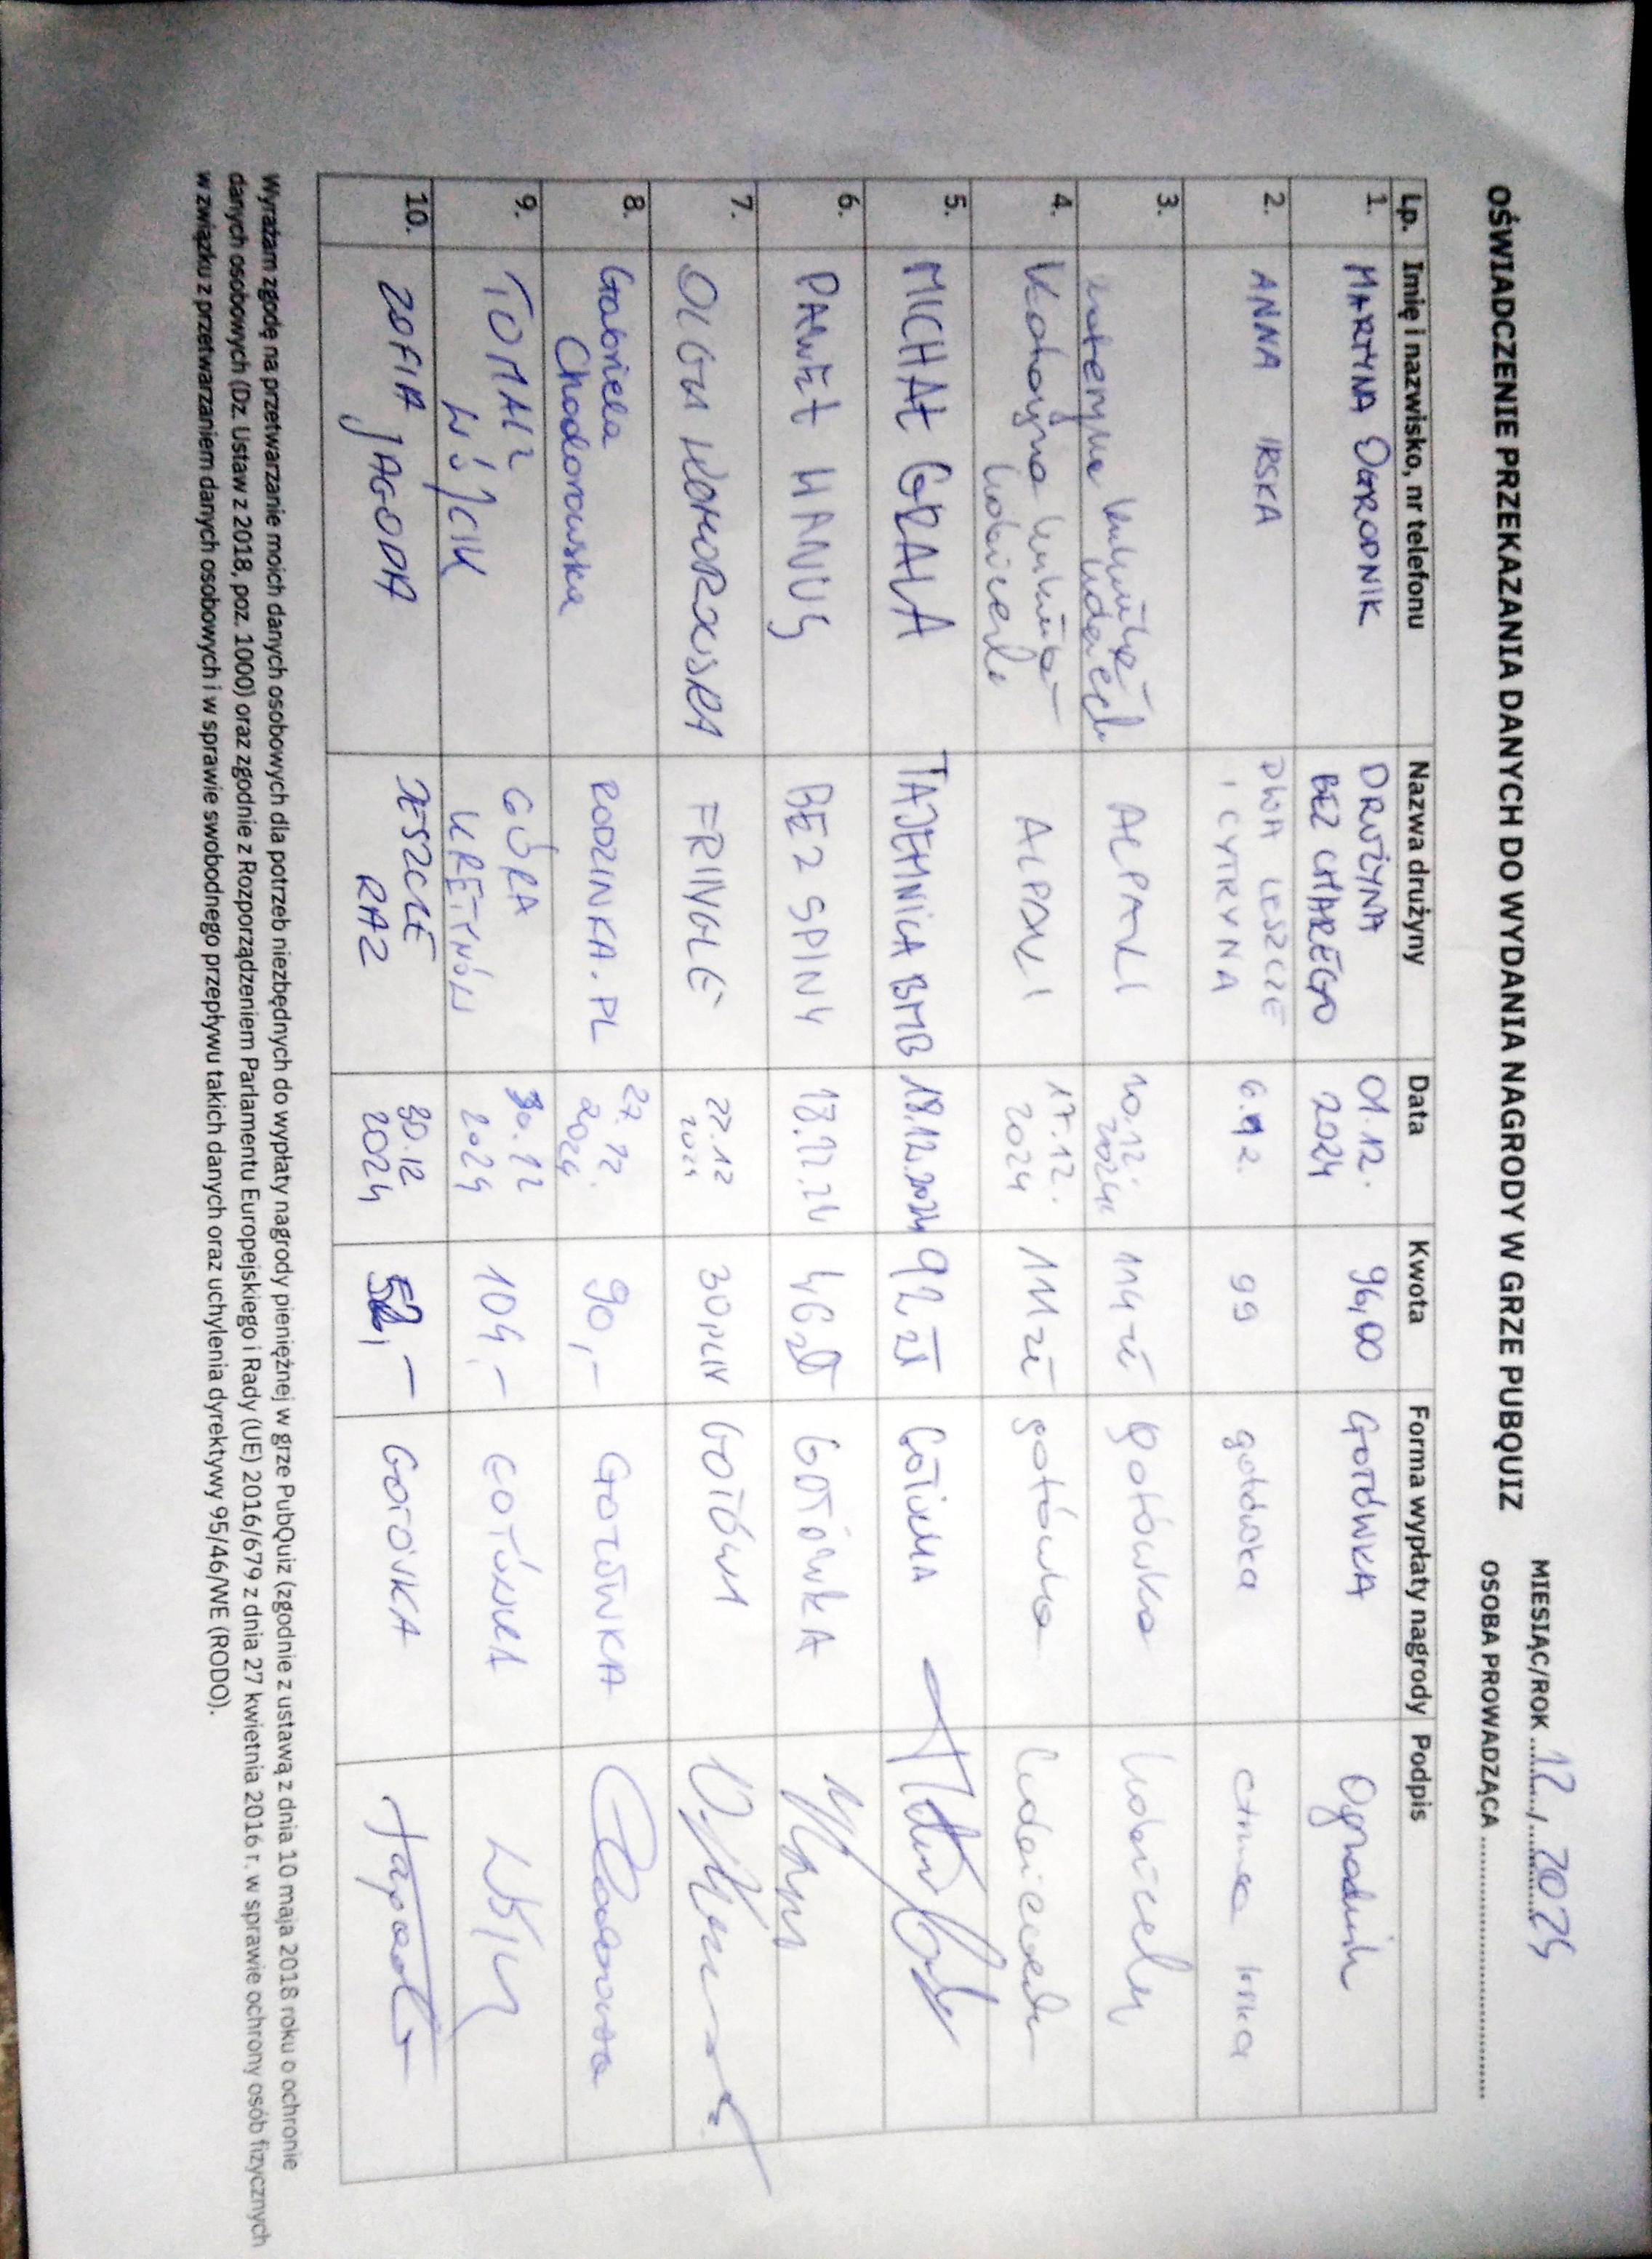 MIESIĄC/ROK ......12...,...2024
OŚWIADCZENIE PRZEKAZANIA DANYCH DO WYDANIA NAGRODY W GRZE PUBQUIZ
OSOBA PROWADZĄCA ........................................
Lp. Imię i nazwisko, nr telefonu Nazwa drużyny Data Kwota Forma wypłaty nagrody Podpis
1. MARTYNA OGRODNIK DRUŻYNA BEZ CHAREGO 01.12. 2024 96,00 GOTÓWKA Ogrodnik
2. ANNA IRSKA DWA LESZCZE I CYTRYNA 6.12. 99 gotówka Anna Irska
3. Kateryna ALPAVI 10.12. 2024 114 zł gotówka
4. Katarzyna ALPAVI 17.12. 2024 111 zł gotówka
5. MICHAŁ GRALA TAJEMNICA BMB 18.12.2024 92 zł GOTÓWKA
6. PAWEŁ HANUS BEZ SPINY 18.12.24 46 zł GOTÓWKA
7. OLGA KOMOROWSKA FRINGLE 27.12 2024 30 PLN GOTÓWA
8. Gabriela Chodorowska RODZINKA.PL 27.12. 2024 90,- GOTÓWKA
9. TOMASZ WÓJCIK GÓRA KRETYNÓW 30.12 2024 104,- GOTÓWKA Wójcik
10. ZOFIA JAGODA JESZCZE RAZ 30.12 2024 52,- GOTÓWKA Jagoda
Wyrażam zgodę na przetwarzanie moich danych osobowych dla potrzeb niezbędnych do wypłaty nagrody pieniężnej w grze PubQuiz (zgodnie z ustawą z dnia 10 maja 2018 roku o ochronie
danych osobowych (Dz. Ustaw z 2018, poz. 1000) oraz zgodnie z Rozporządzeniem Parlamentu Europejskiego i Rady (UE) 2016/679 z dnia 27 kwietnia 2016 r. w sprawie ochrony osób fizycznych
w związku z przetwarzaniem danych osobowych i w sprawie swobodnego przepływu takich danych oraz uchylenia dyrektywy 95/46/WE (RODO).